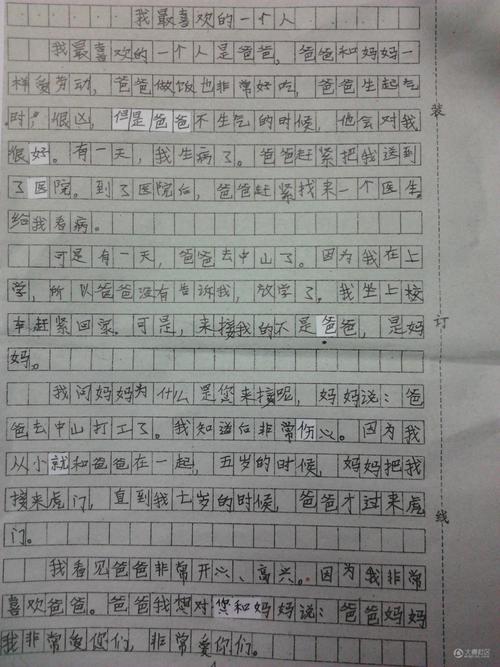 我最喜欢的一个人
我最喜欢的一个人是爸爸,爸爸和妈妈一
样爱劳动,爸爸做饭也非常好吃,爸爸生起气
时,很凶,但是爸爸不生气的时候,他会对我
很好。有一天,我生病了。爸爸赶紧把我送到
了医院。到了医院后,爸爸赶紧找来一个医生。
给我看病。
可是有一天,爸爸去中山了。因为我在上
学,所以爸爸没有告诉我,放学了。我坐上校
车赶紧回家。可是,来接我的不是爸爸,是妈
妈。
我问妈妈为什么是您来接呢,妈妈说:爸
爸去中山打工了。我知道后非常伤心。因为我
从小就和爸爸在一起,五岁的时候,妈妈把我
接来虎门,直到我七岁的时候,爸爸才过来虎
门。
我看见爸爸非常开心、高兴。因为我非常
喜欢爸爸。爸爸我想对您和妈妈说:爸爸妈妈
我非常爱您们,非常爱你们。
装
订
线
大粤社区